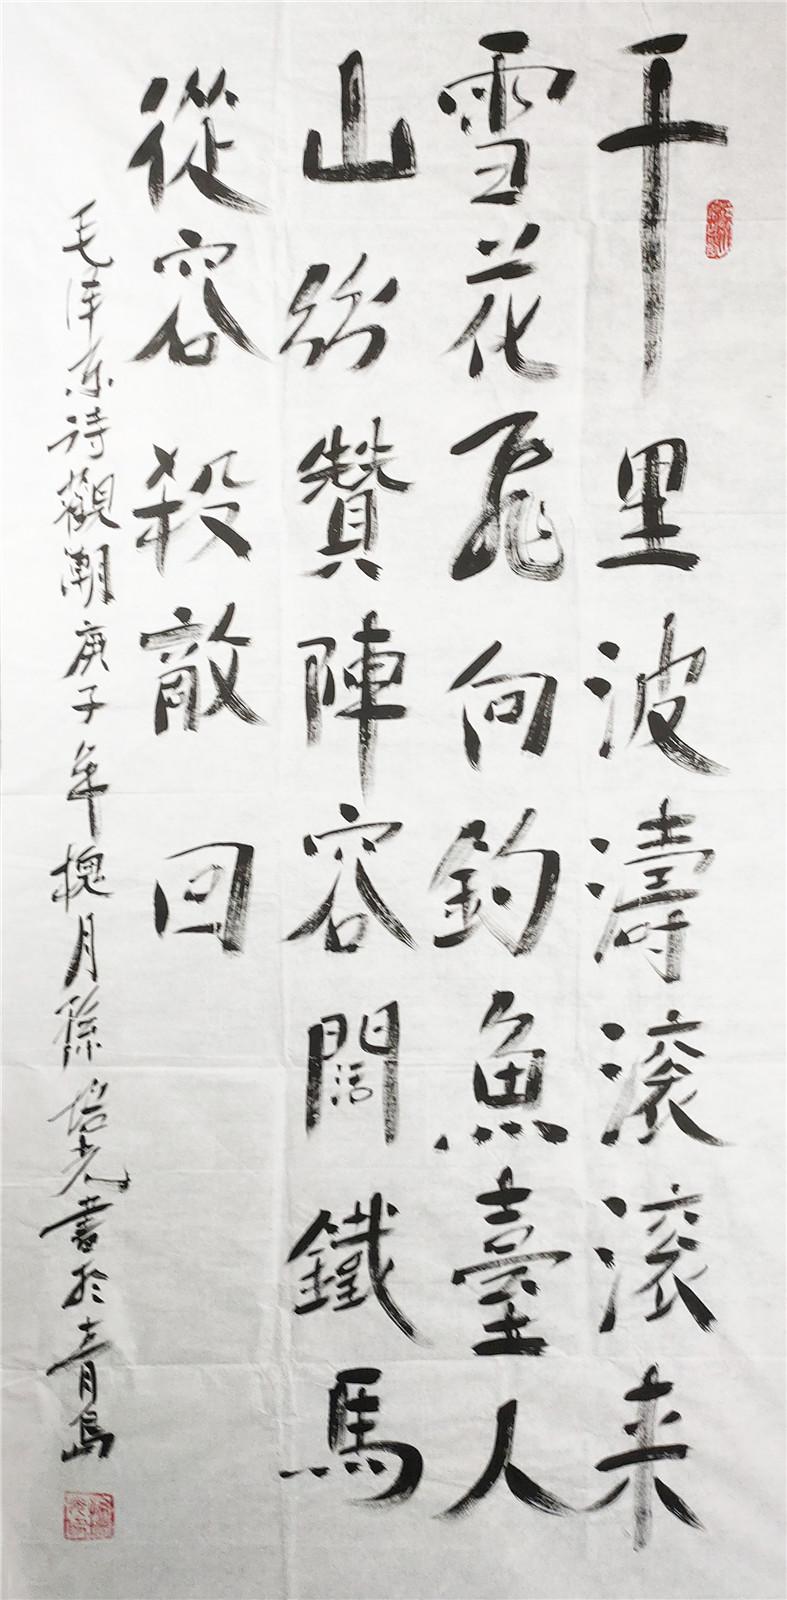 千里波濤滚滚来
雪花飛向釣魚臺人
山紛贊陣容闊鐵馬
從容殺敵回
毛泽东诗觀潮庚子年槐月徐培光書於青島